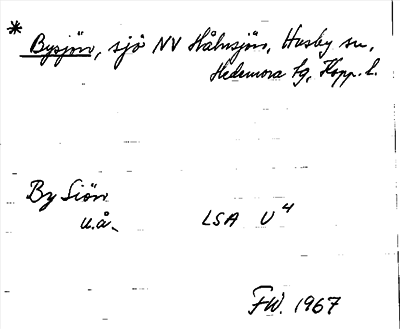 * Bysjön, sjö NV Hålnsjön, Husby sn,
Hedemora tg, Kopp. l.
By Siön
u.å. LSA U4
FW. 1967